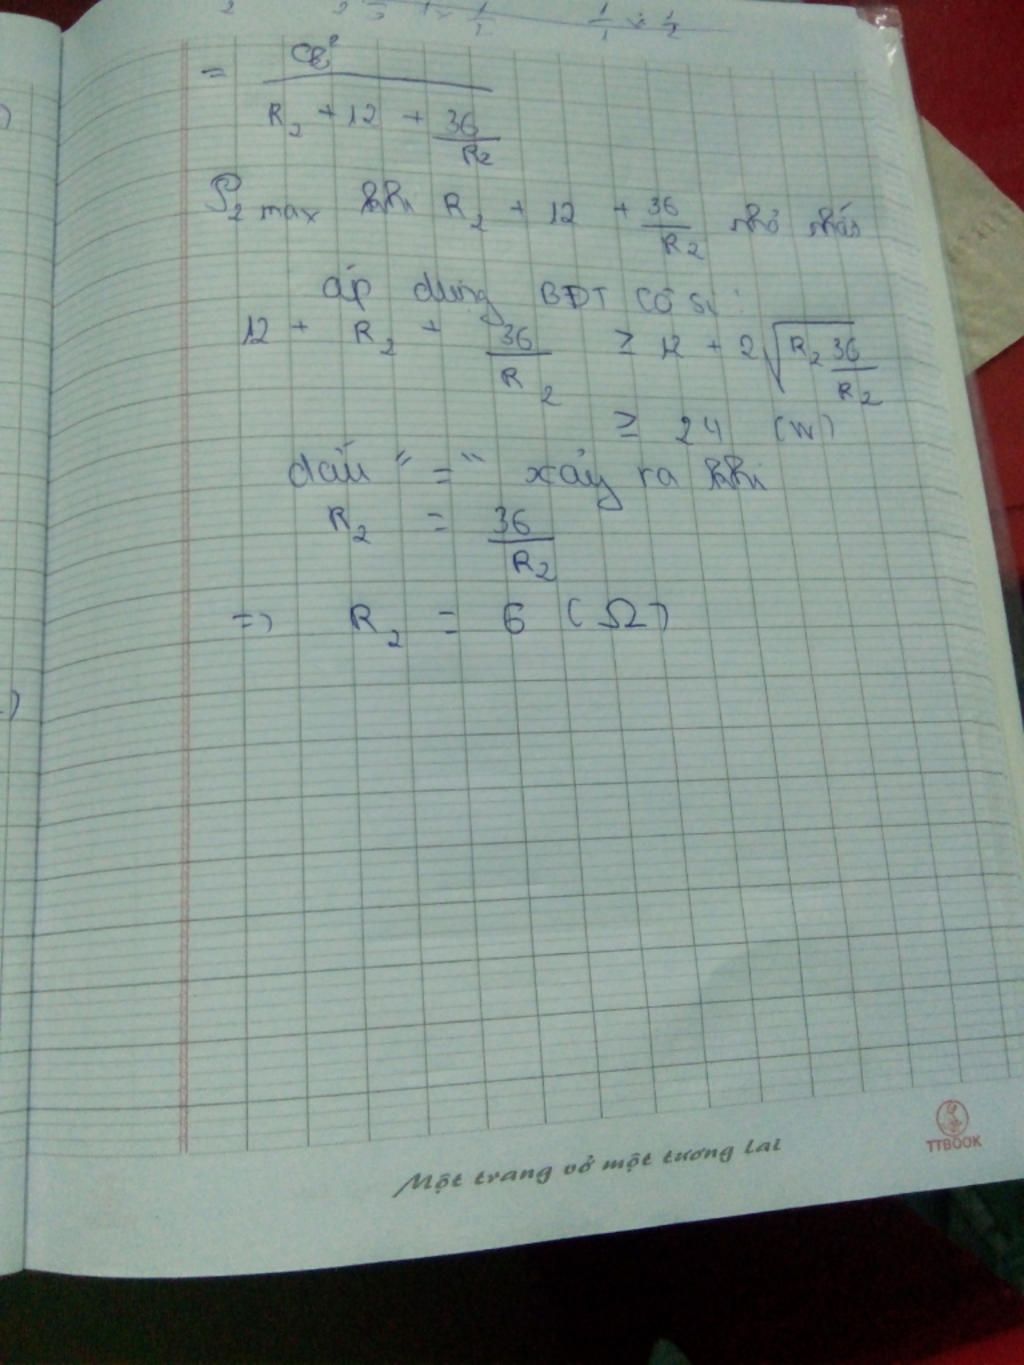 =
R₂ + 12 + 36/R₂
P₂ max khi R₂ + 12 + 36/R₂ nhỏ nhất
áp dụng BĐT Cô si :
12 + R₂ + 36/R₂ ≥ 12 + 2√(R₂ 36/R₂)
≥ 24 (W)
dấu " = " xảy ra khi
R₂ = 36/R₂
=> R₂ = 6 (Ω)
Một trang vở một tương lai
TTBOOK